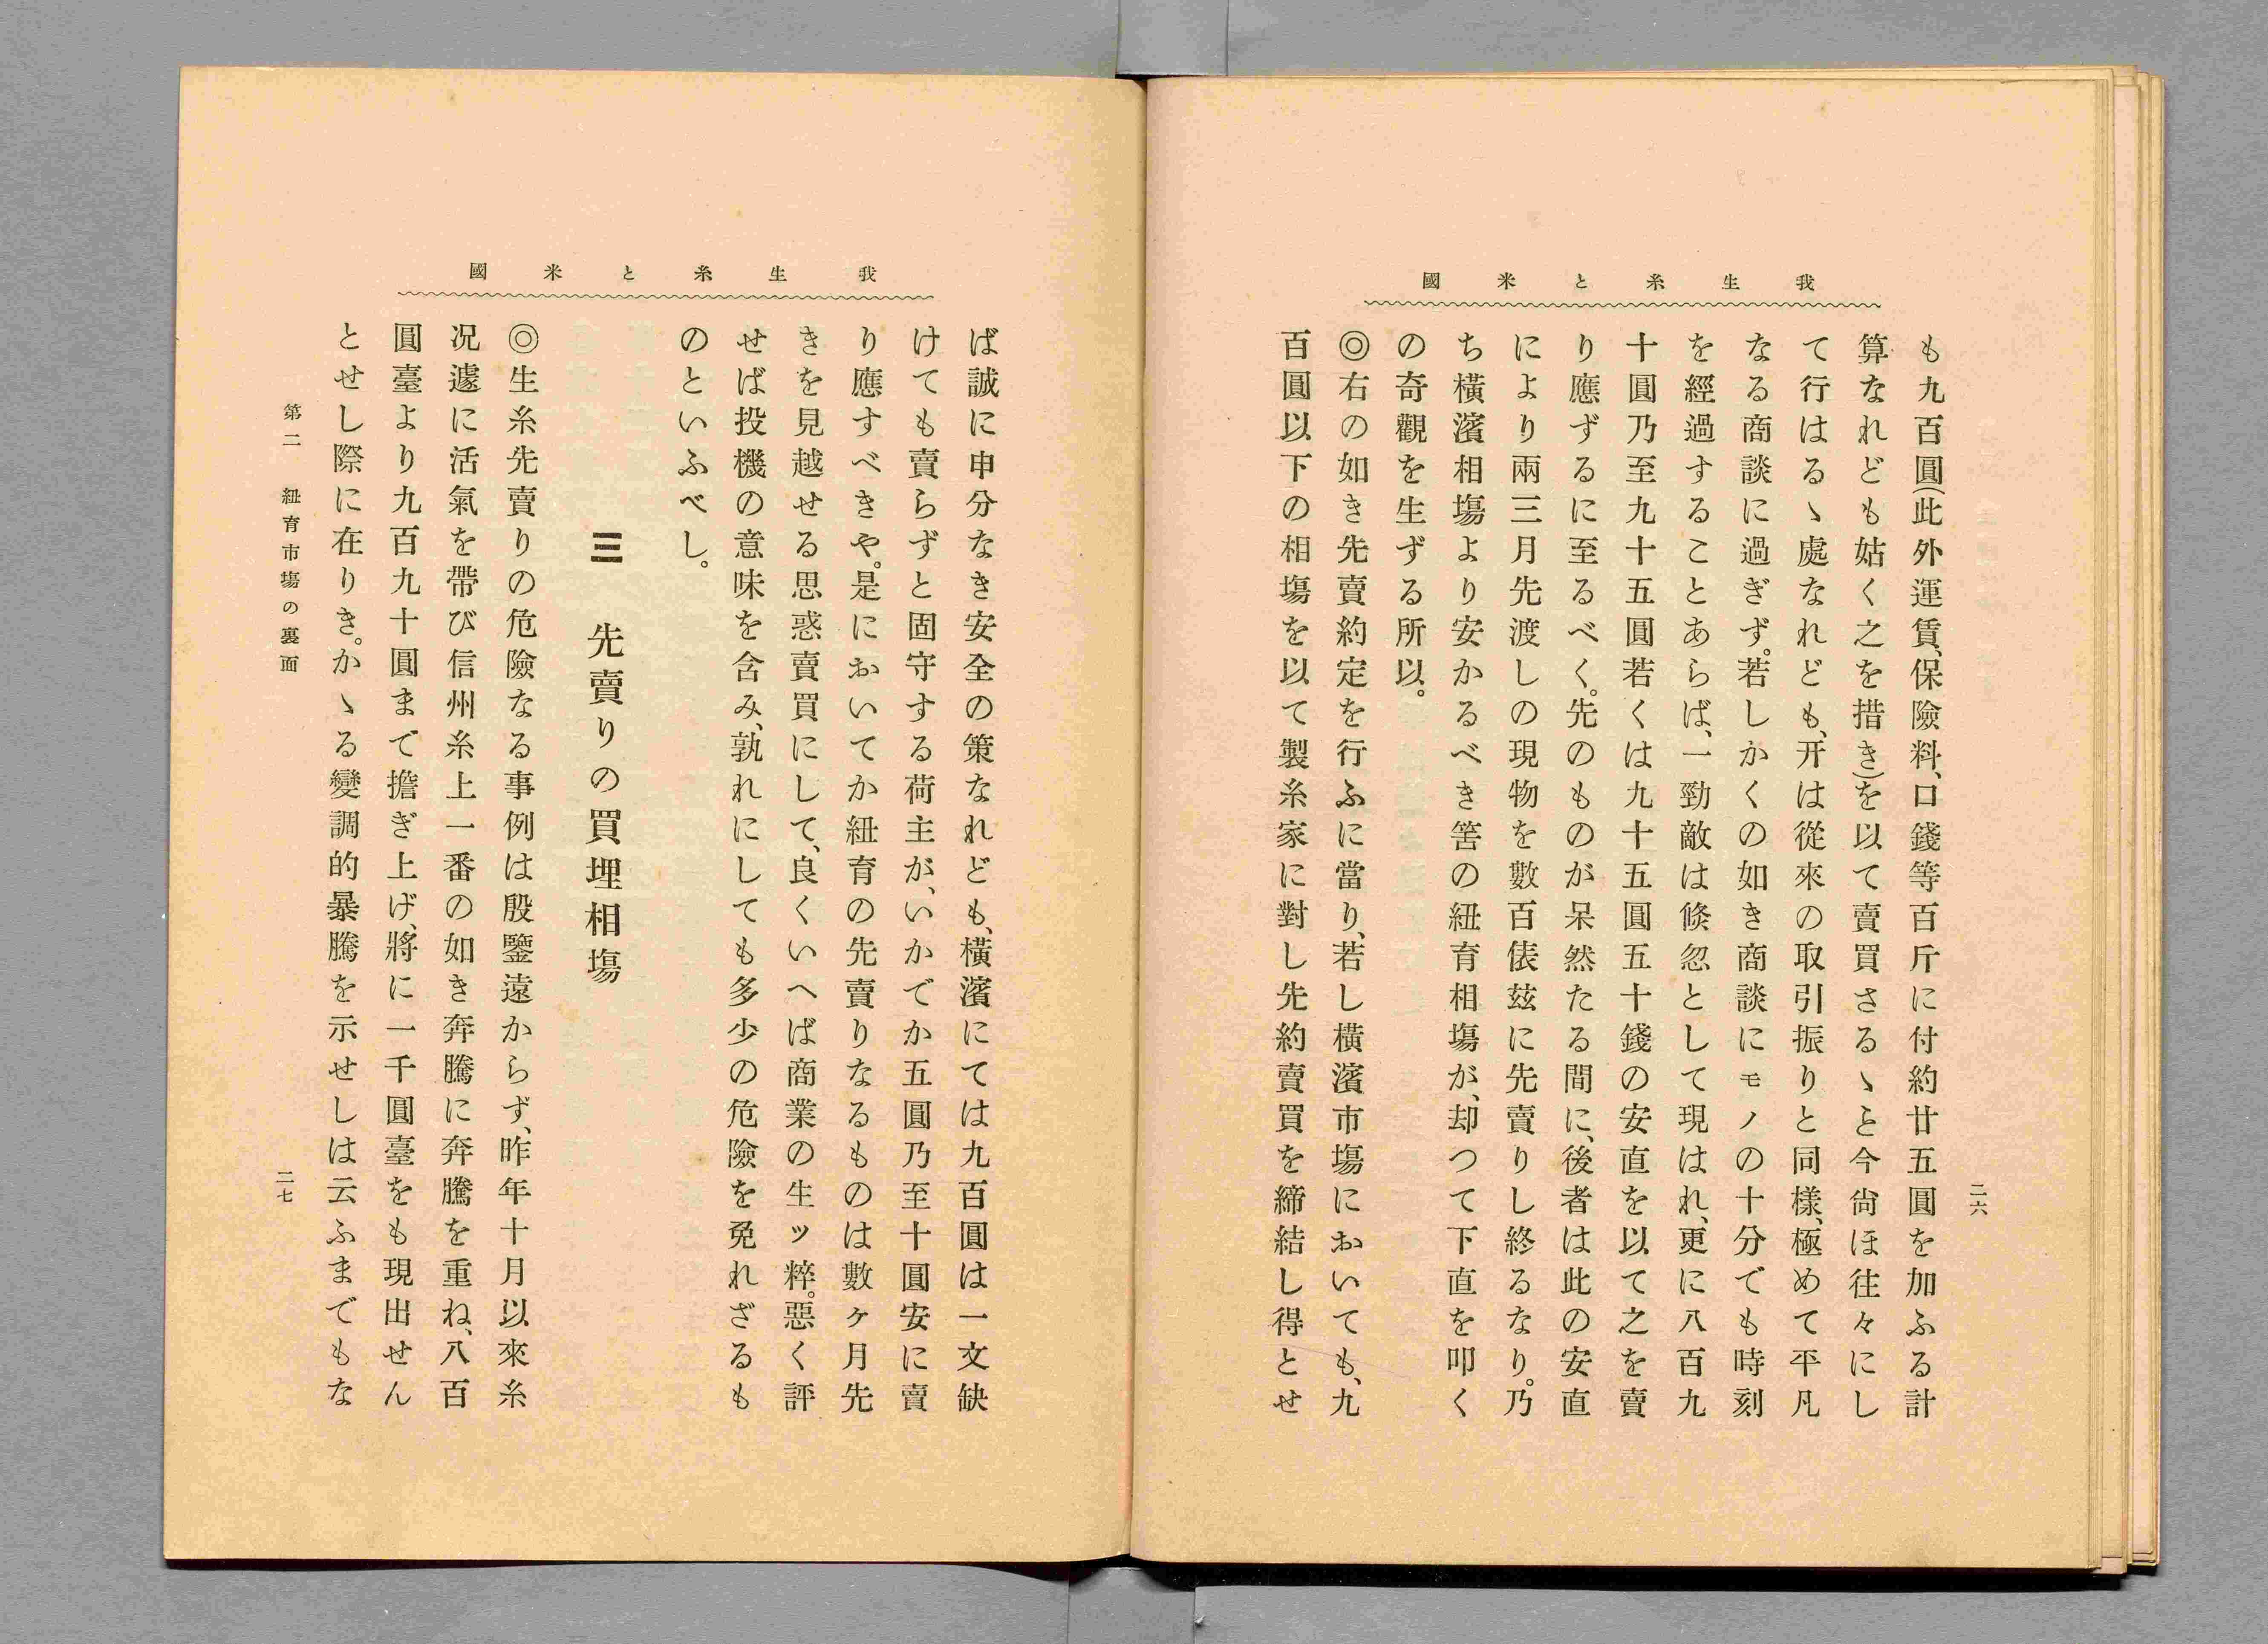 我生糸と米國
も九百圓(此外運賃、保險料、口錢等百斤に付約廿五圓を加ふる計
算なれども姑く之を措き)を以て賣買さるゝと今尙ほ往々にし
て行はるゝ處なれども、开は從來の取引振りと同樣、極めて平凡
なる商談に過ぎず。若しかくの如き商談にモノの十分でも時刻
を經過することあらば、一勁敵は倐忽として現はれ、更に八百九
十圓乃至九十五圓若くは九十五圓五十錢の安直を以て之を賣
り應ずるに至るべく。先のものが呆然たる間に、後者は此の安直
により兩三月先渡しの現物を數百俵玆に先賣りし終るなり。乃
ち橫濱相塲より安かるべき筈の紐育相塲が、却つて下直を叩く
の奇觀を生ずる所以。
◎右の如き先賣約定を行ふに當り、若し橫濱市塲においても、九
百圓以下の相塲を以て製糸家に對し先約賣買を締結し得とせ
二六
我生糸と米國
ば誠に申分なき安全の策なれども、橫濱にては九百圓は一文缺
けても賣らずと固守する荷主が、いかでか五圓乃至十圓安に賣
り應すべきや。是においてか紐育の先賣りなるものは數ヶ月先
きを見越せる思惑賣買にして、良くいへば商業の生ッ粹。惡く評
せば投機の意味を含み、孰れにしても多少の危險を免れざるも
のといふべし。
三 先賣りの買埋相塲
◎生糸先賣りの危險なる事例は殷鑒遠からず、昨年十月以來糸
況遽に活氣を帶び信州糸上一番の如き奔騰に奔騰を重ね、八百
圓臺より九百九十圓まで擔ぎ上げ、將に一千圓臺をも現出せん
とせし際に在りき。かゝる變調的暴騰を示せしは云ふまでもな
第二 紐育市塲の裏面
二七